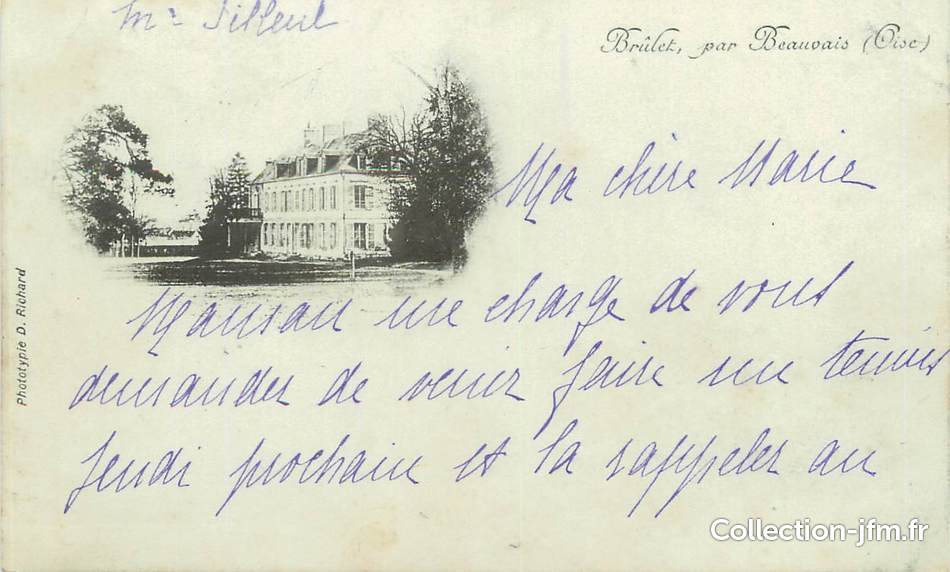 Mr Tilleul
Brûlet, par Beauvais (Oise)
Ma chère Marie
Maman me charge de vous
demander de venir faire un tennis
jeudi prochain et la rappeler au
Phototypie D. Richard
Collection-jfm.fr